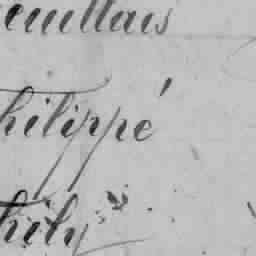 euillais
hilippé
hily